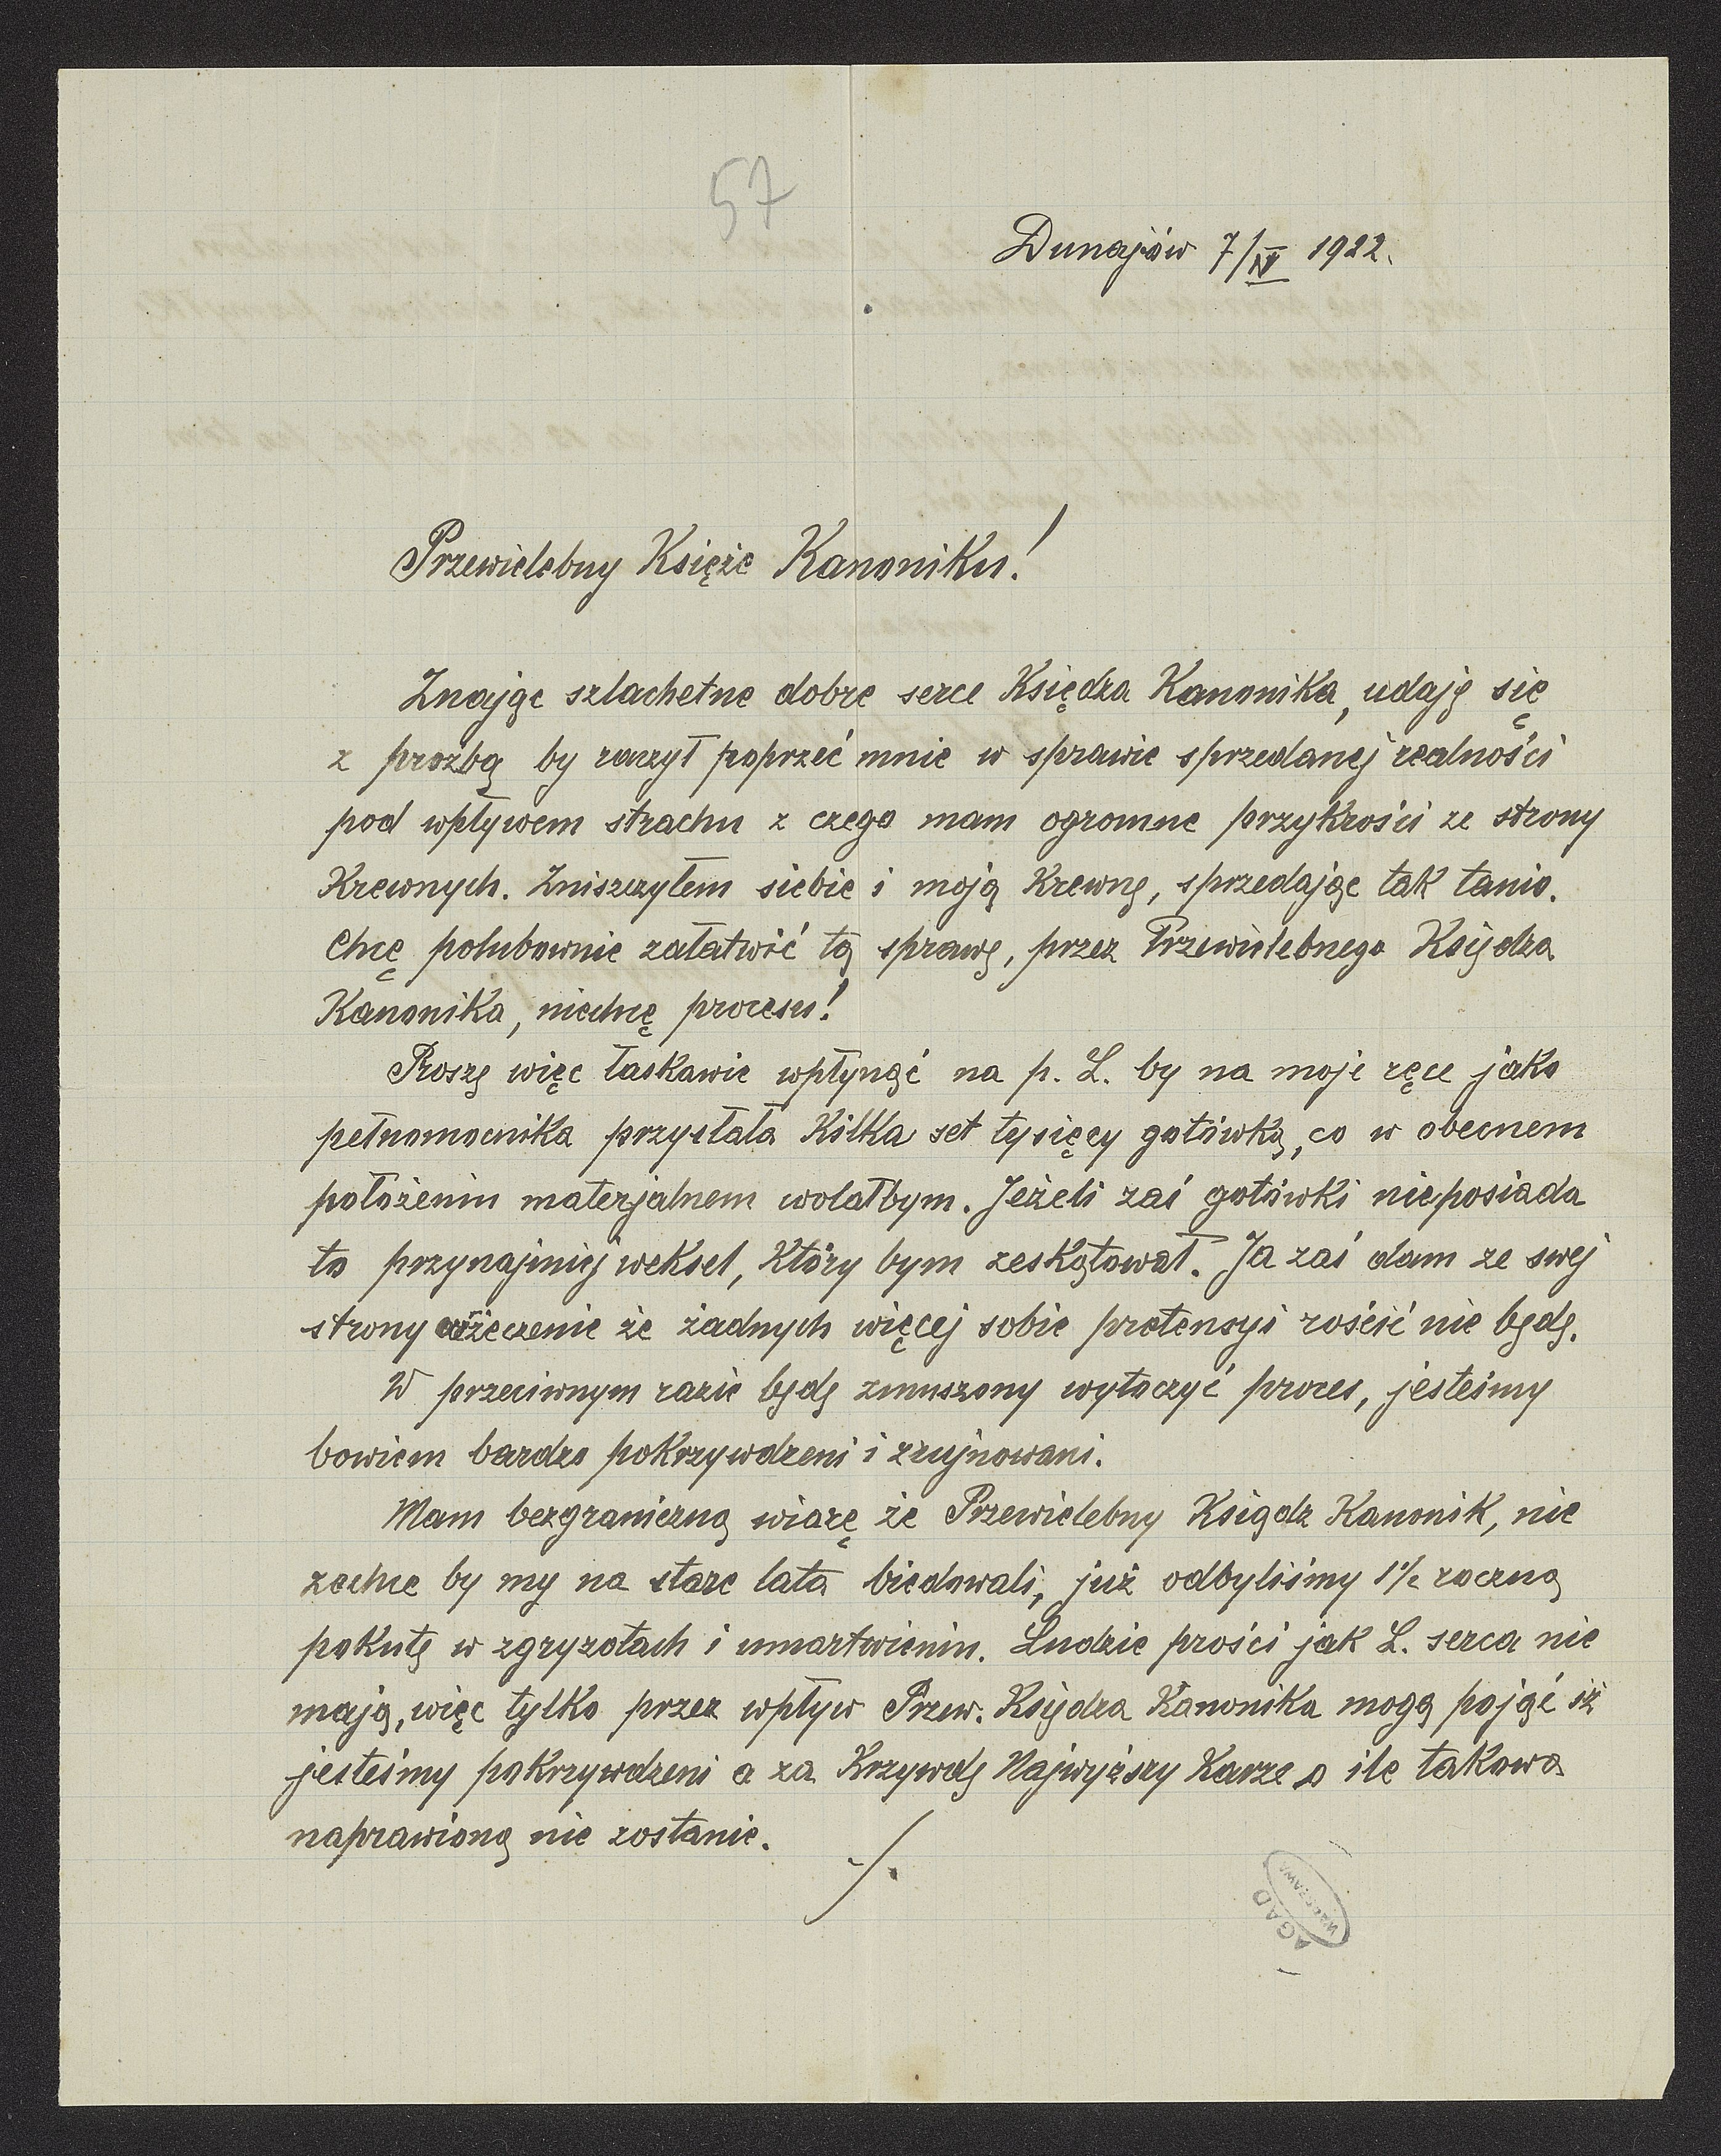 57
Dunajów 7/IV 1922.
Przewielebny Księże Kanoniku!
Znając szlachetne dobre serce Księdza Kanonika, udaję się
z prożbą by raczył poprzeć mnie w sprawie sprzedanej realności
pod wpływem strachu z czego mam ogromne przykrości ze strony
Krewnych. Zniszczyłem siebie i moją Krewnę, sprzedając tak tanio.
Chcę polubownie załatwić tą sprawę, przez Przewielebnego Księdza
Kanonika, niechcę procesu!
Proszę więc łaskawie wpłynąć na p. L. by na moje ręce jako
pełnomocnika przysłała Kilka set tysięcy gotówką, co w obecnem
położeniu materjalnem wolałbym. Jeżeli zaś gotówki nieposiada
to przynajmniej weksel, Który bym zeskątował. Ja zaś dam ze swej
strony orzeczenie że żadnych więcej sobie pretensyi rościć nie będę.
W przeciwnym razie będę zmuszony wytoczyć proces, jesteśmy
bowiem bardzo pokrzywdzeni i zrujnowani.
Mam bezgraniczną wiarę że Przewielebny Ksiądz Kanonik, nie
zechce by my na stare lata biedowali, już odbyliśmy 1½ roczną
pokutę w zgryzotach i umartwieniu. Ludzie prości jak L. serca nie
mają, więc tylko przez wpływ Przew. Księdza Kanonika mogą pojąć iż
jesteśmy pokrzywdzeni a za Krzywdę Najwyższy Karze o ile takowa
naprawioną nie zostanie.
./.
AGAD
WARSZAWA